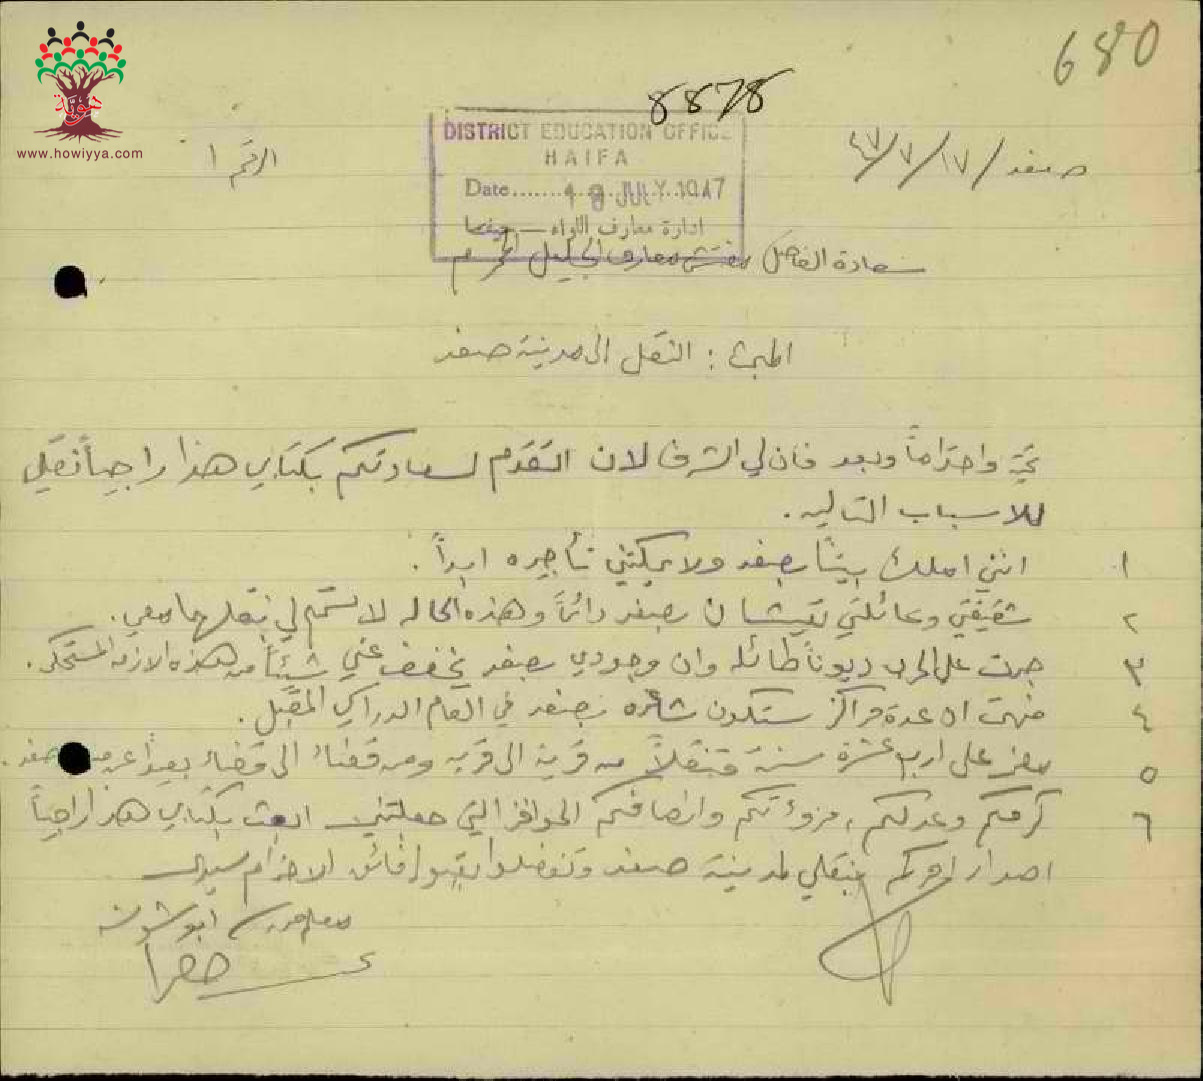 680
8878
هوية
www.howiyya.com
DISTRICT EDUCATION OFFICE
HAIFA
Date 18 JULY 1947
ادارة معارف اللواء – حيفا
صفد / ١٧ / ٧ / ٤٧
الرقم ١
سعادة الفاضل مفتش معارف الجليل المحترم
المبحث : النقل الى مدينة صفد
تحية واحتراماً وبعد فان لي الشرف لان اتقدم لسعادتكم بكتابي هذا راجياً نقلي
للاسباب التاليه .
١ انني املك بيتاً بصفد ولا يمكنني تأجيره ابداً .
٢ شقيقتي وعائلتي تعيشان بصفد دائماً وهذه الحاله لا تسمح لي بنقلها معي .
٣ جرت على الحرب ديوناً طائله وان وجودي بصفد يخفف عني شيئاً من هذه الازمه المستحكمه .
٤ فهمت ان عدة مراكز ستكون شاغره بصفد في العام الدراسي المقبل .
٥ مضى على اربع عشرة سنة متنقلاً من قرية الى قريه ومن قضاء الى قضاء بعيداً عن صفد .
٦ كرمكم وعدلكم ، مروءتكم وانصافكم الحوافز التي جعلتني ابعث بكتابي هذا راجياً
اصدار امركم بنقلي لمدينة صفد وتفضلوا بقبول فائق الاحترام سيدي
معلم مدرسة ابو شوشة